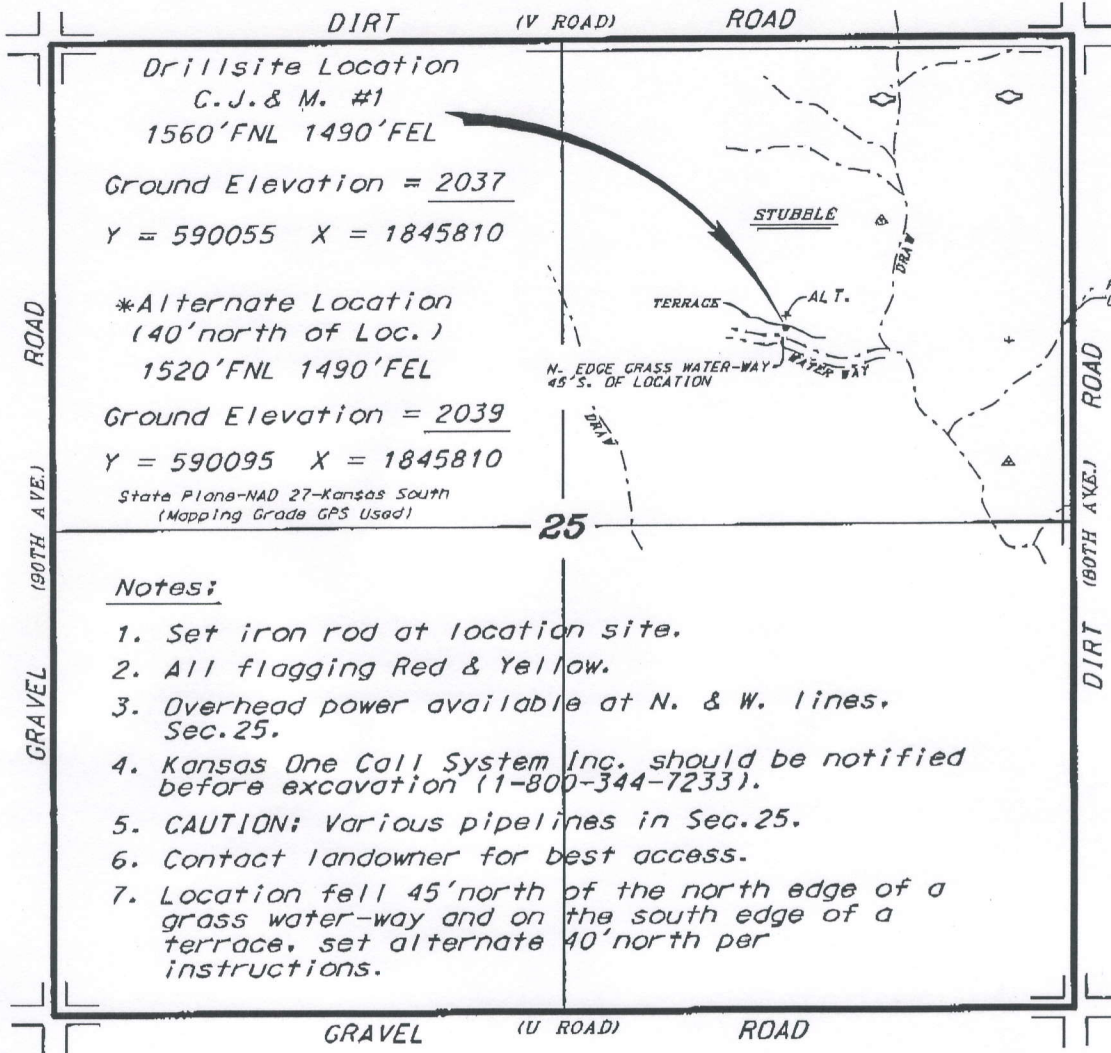 DIRT (V ROAD) ROAD
Drillsite Location
C.J.& M. #1
1560'FNL 1490'FEL
Ground Elevation = 2037
Y = 590055 X = 1845810
*Alternate Location
(40'north of Loc.)
1520'FNL 1490'FEL
Ground Elevation = 2039
Y = 590095 X = 1845810
State Plane-NAD 27-Kansas South
(Mapping Grade GPS Used)
STUBBLE
DRAW
TERRACE
ALT.
N. EDGE GRASS WATER-WAY
45'S. OF LOCATION
WATER WAY
DRAW
25
GRAVEL (90TH AVE.) ROAD
DIRT (80TH AVE.) ROAD
Notes:
1. Set iron rod at location site.
2. All flagging Red & Yellow.
3. Overhead power available at N. & W. lines,
Sec.25.
4. Kansas One Call System Inc. should be notified
before excavation (1-800-344-7233).
5. CAUTION: Various pipelines in Sec.25.
6. Contact landowner for best access.
7. Location fell 45'north of the north edge of a
grass water-way and on the south edge of a
terrace, set alternate 40'north per
instructions.
GRAVEL (U ROAD) ROAD